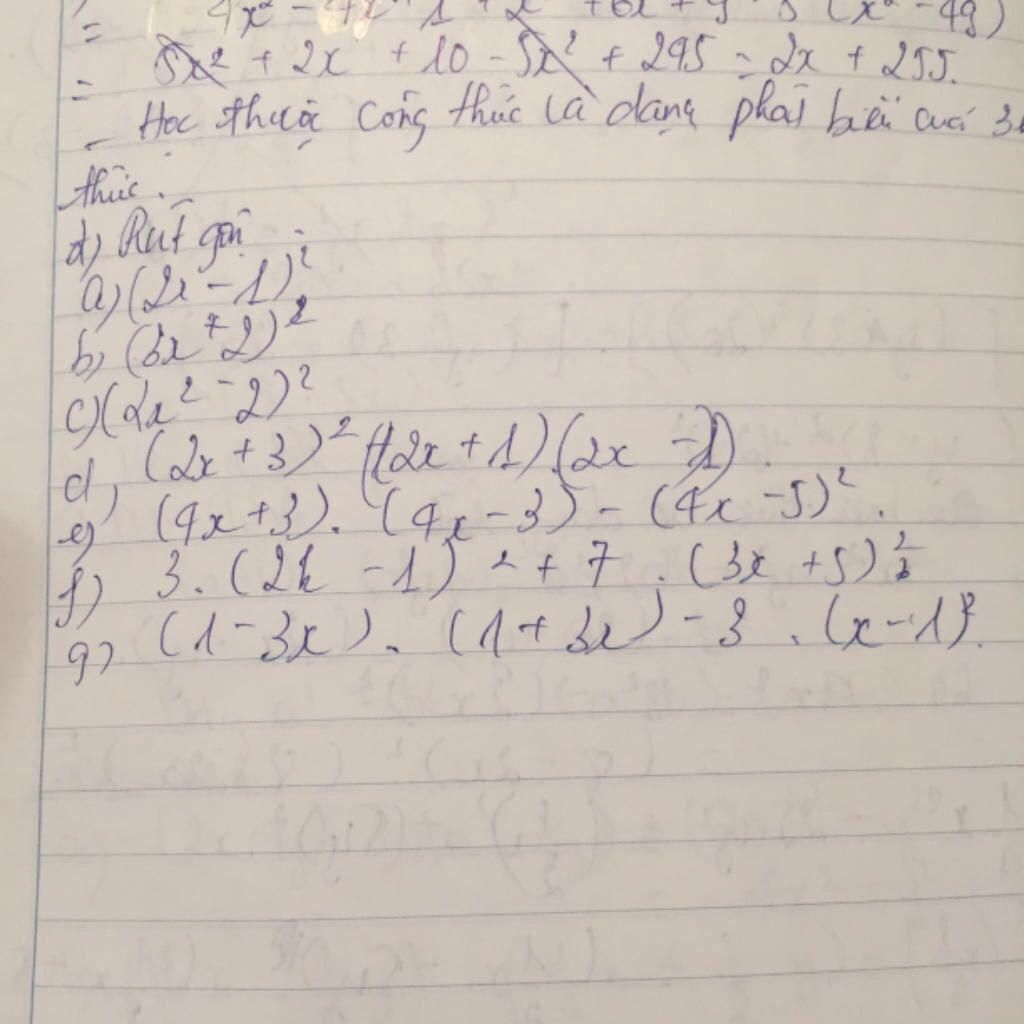 = 4x² - 4x + 1 + x² + 6x + 9 - 5 (x² - 49)
= 5x² + 2x + 10 - 5x² + 245 = 2x + 255.
- Học thuộc công thức và dạng phát biểu của 3
thức.
d) Rút gọn :
a) (2x - 1)²
b) (3x + 2)²
c) (2x² - 2)²
d) (2x + 3)² + (2x + 1).(2x - 1).
e) (4x + 3). (4x - 3) - (4x - 5)².
f) 3. (2x - 1)² + 7 . (3x + 5)²
g) (1 - 3x) . (1 + 3x) - 3 . (x - 1)².